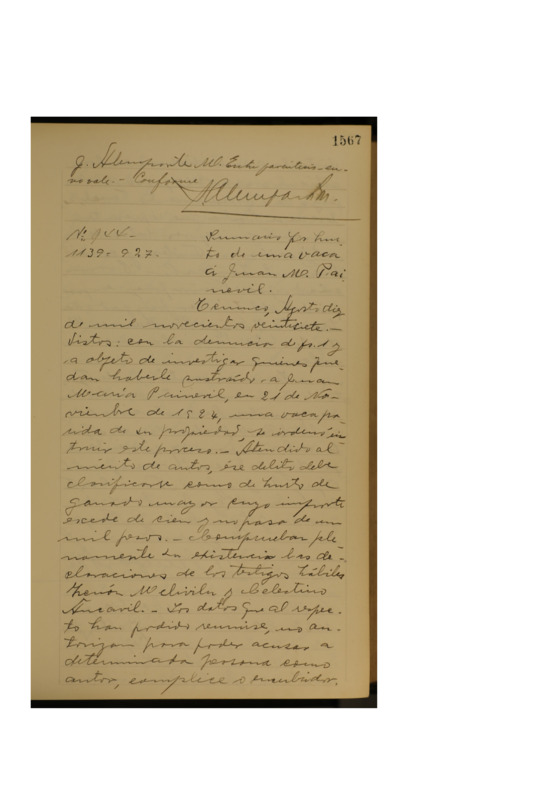 1567
J. Alemparte M. Entre paréntesis-en-
no vale.- Conforme
No 944-
1139-927.
Sumario ps hur-
to de una vaca
a Juan Ma. Pai
nevil.
Temuco, Agosto diez
de mil novecientos veintisiete.-
Vistos: con la denuncia de fs. 1 y
a objeto de investigar quienes pue-
dan haberle sustraído a Juan
María Painevil, en 21 de No-
viembre de 1924, una vaca pa-
rida de su propiedad, se ordenó ins
truir este proceso.- Atendido al
mérito de autos, ese delito debe
clasificarse como de hurto de
ganado mayor cuyo importe
excede de cien y no pasa de un
mil pesos.- Comprueban ple-
namente su existencia las de-
claraciones de los testigos hábiles
Zenón y Celestino
Ancavil.- Los datos que al respec-
to han podido reunirse, no au-
torizan para poder acusar a
determinada persona como
autor, complice o encubridor.